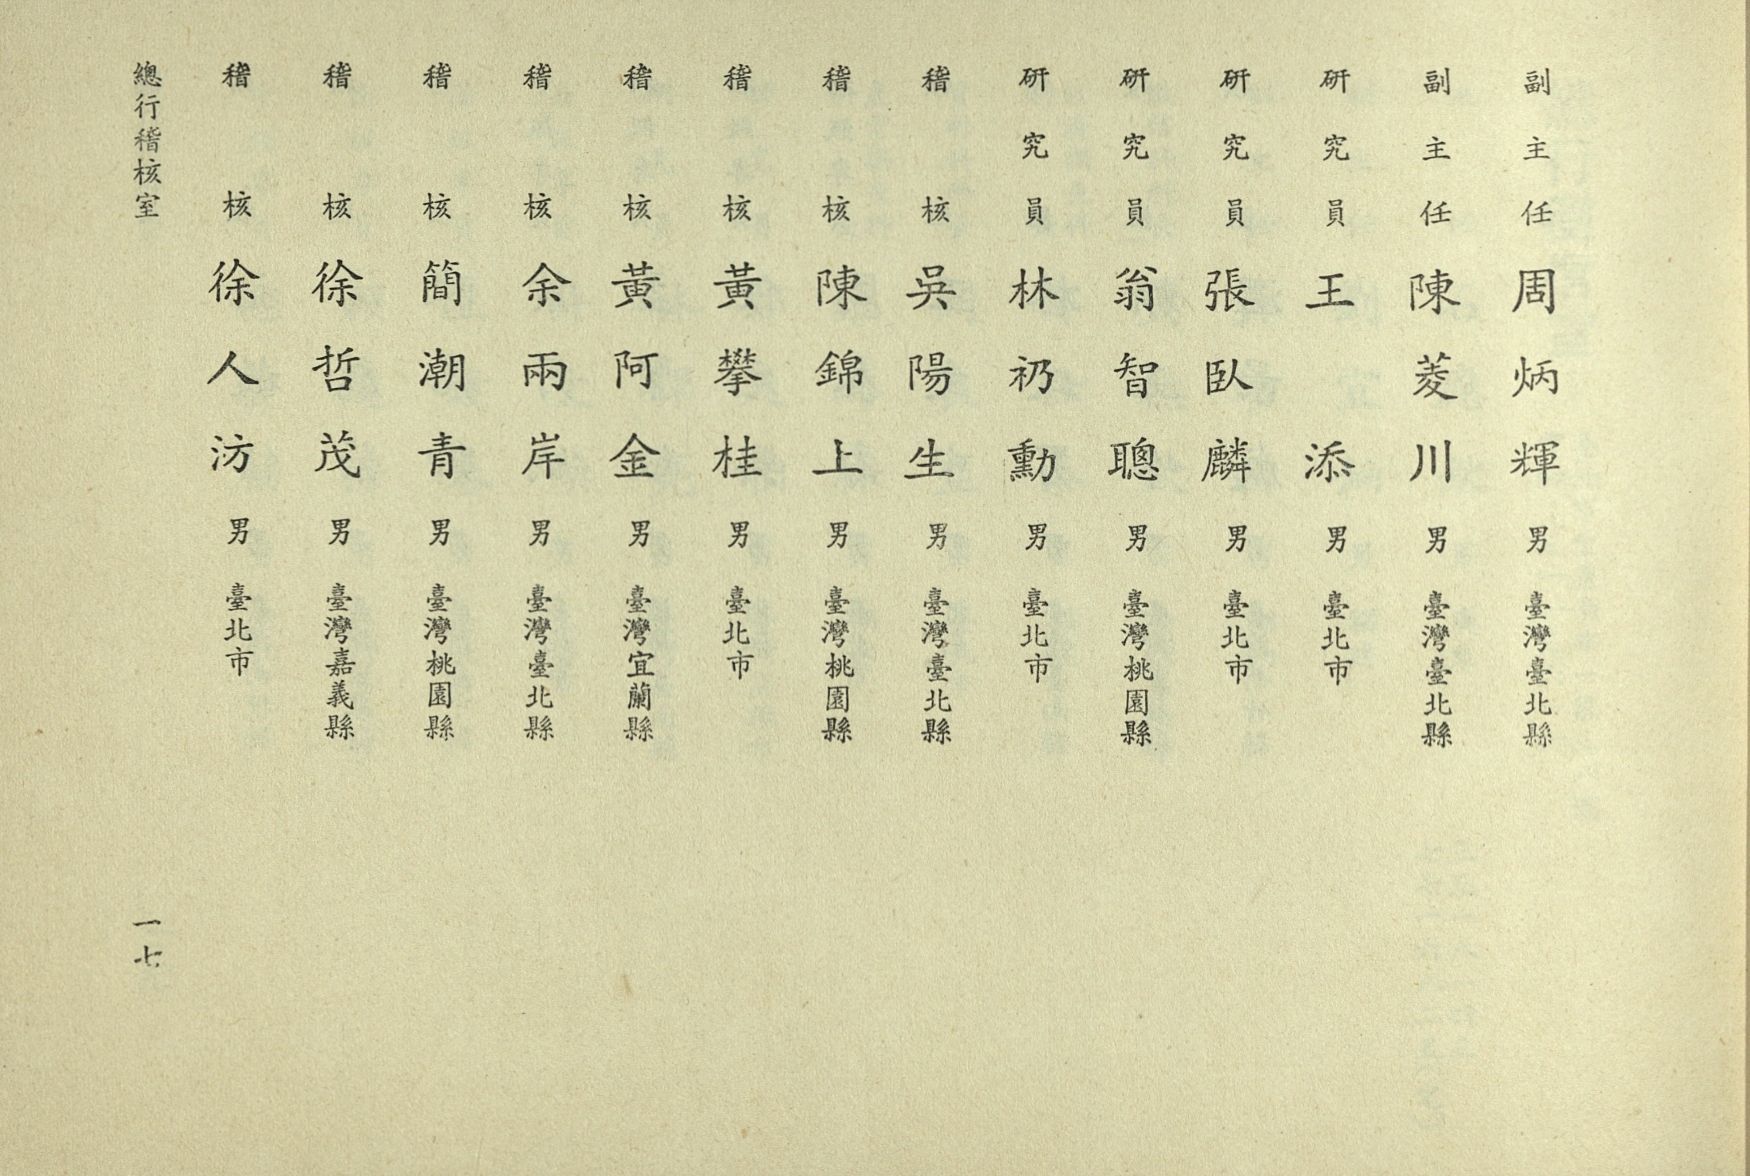 副主任周炳輝男臺灣臺北縣
副主任陳菱川男臺灣臺北縣
研究員王添男臺北市
研究員張臥麟男臺北市
研究員翁智聰男臺灣桃園縣
研究員林礽勳男臺北市
稽核吳陽生男臺灣臺北縣
稽核陳錦上男臺灣桃園縣
稽核黃攀桂男臺北市
稽核黃阿金男臺灣宜蘭縣
稽核余兩岸男臺灣臺北縣
稽核簡潮青男臺灣桃園縣
稽核徐哲茂男臺灣嘉義縣
稽核徐人汸男臺北市
總行稽核室
一七